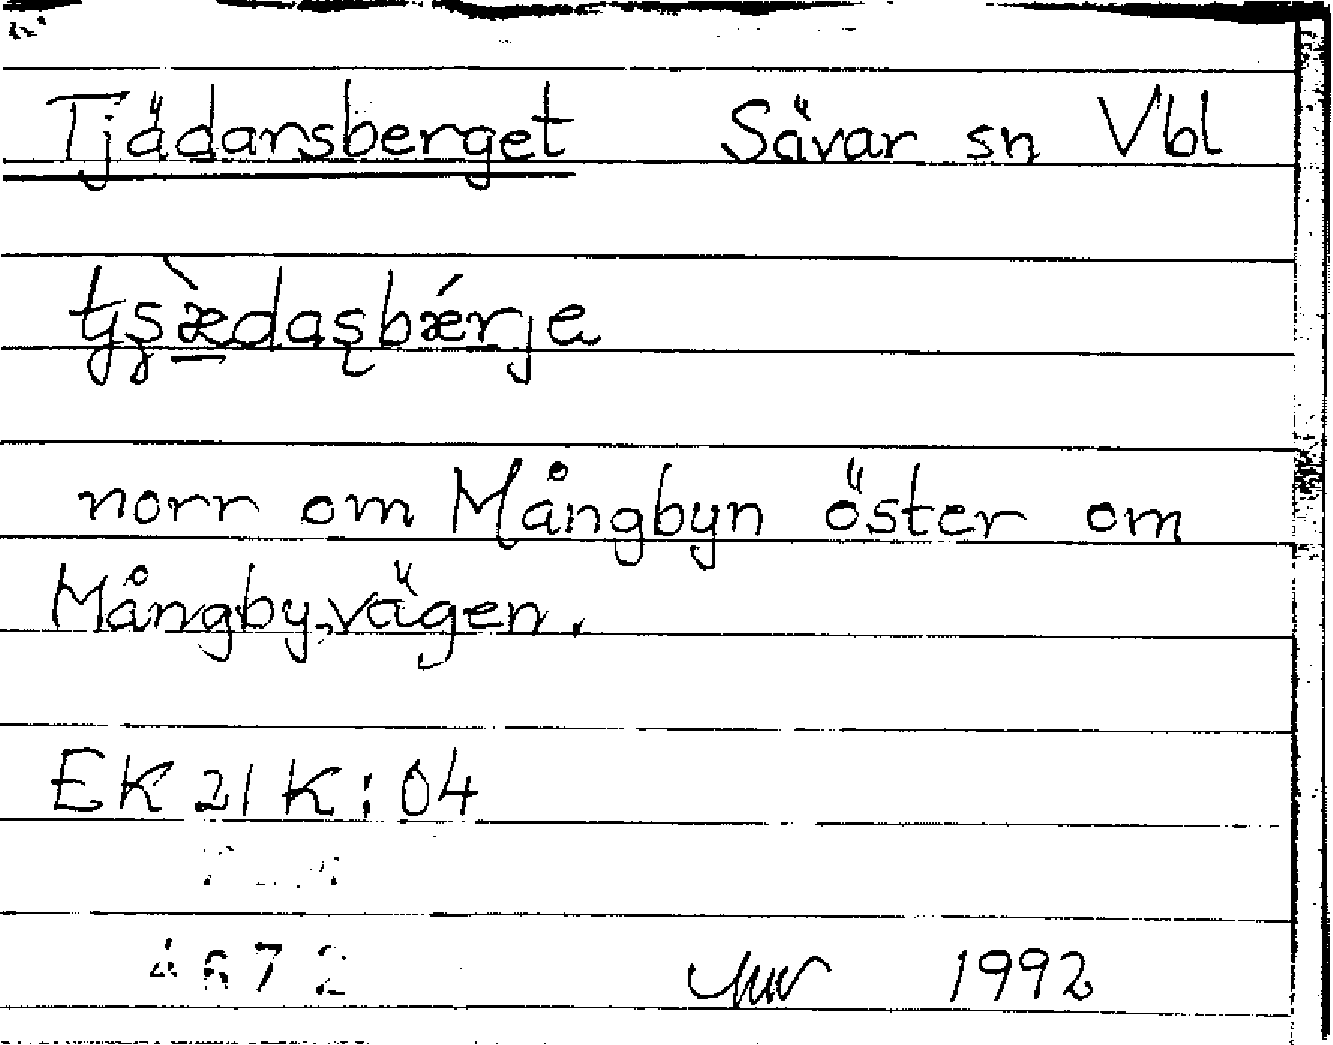 Tjädarsberget Sävar sn Vbl
norr om Mångbyn öster om
Mångbyvägen.
EK 21 K: 04
4672 1992